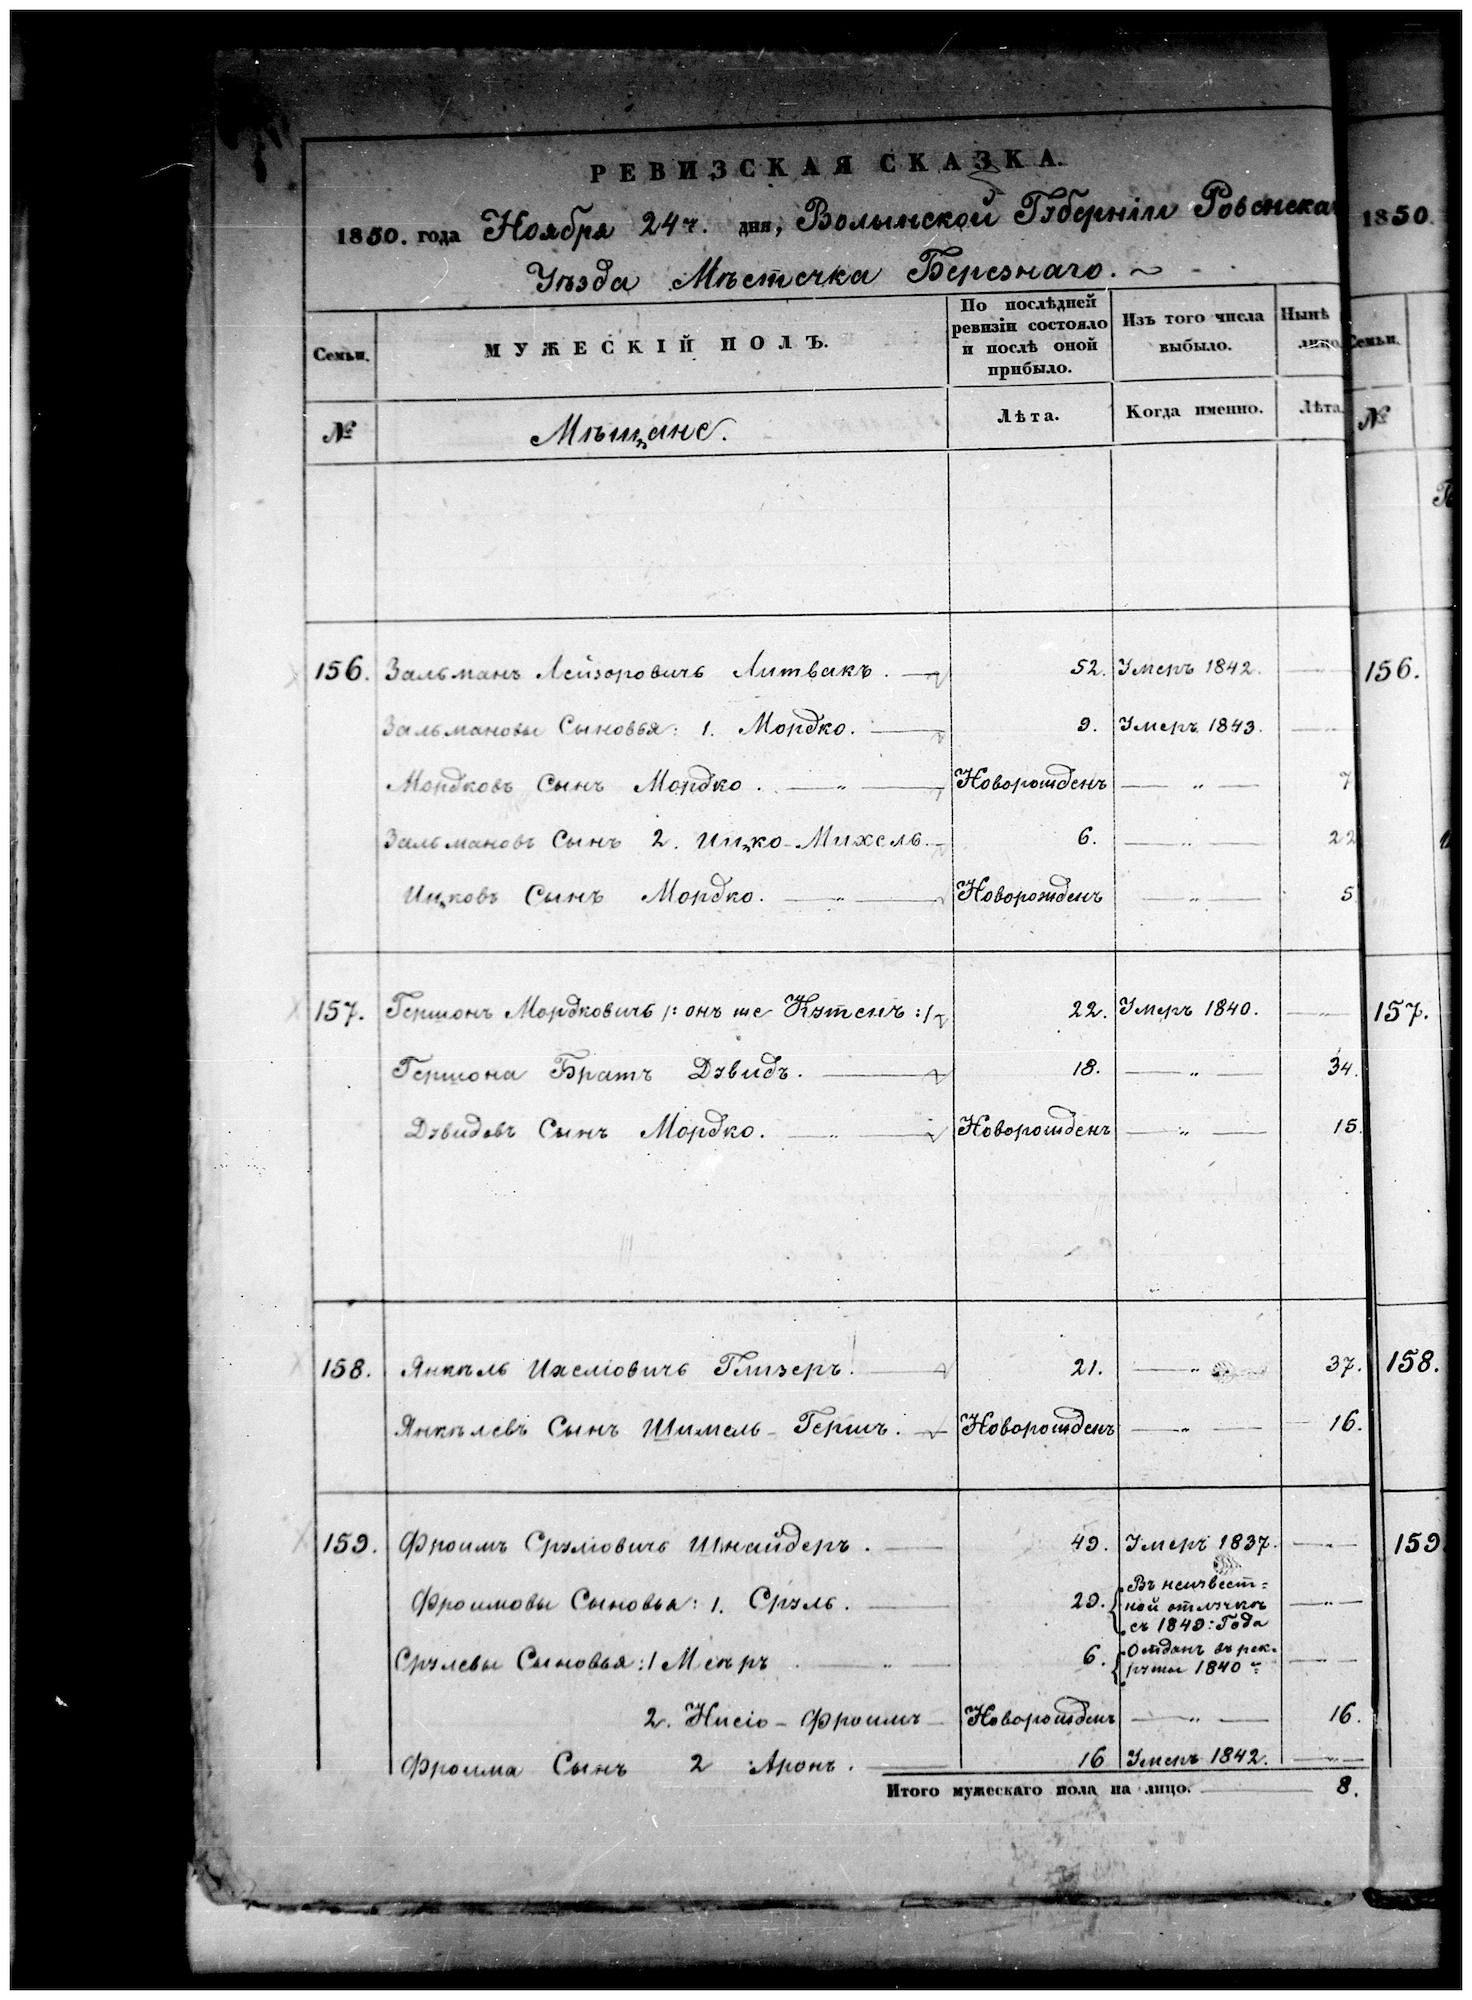 РЕВИЗСКАЯ СКАЗКА.
1850. года Ноября 24ч. дня, Волынской Губерніи Ровенска
Уѣзда Мѣстечка Березнаго.
Семьи. МУЖЕСКІЙ ПОЛЪ. По послѣдней ревизіи состояло и послѣ оной прибыло. Изъ того числа выбыло. Нынѣ лицо.
№ Мѣщане. Лѣта. Когда именно. Лѣта.
156. Зальманъ Лейзоровичъ Литвакъ. 52. Умеръ 1842.
Зальмановы Сыновья: 1. Мордко. 9. Умеръ 1843.
Мордковъ Сынъ Мордко. Новорожденъ — „ — 7
Зальмановъ Сынъ 2. Ицко-Михель. 6. — „ — 22
Ицковъ Сынъ Мордко. — „ — Новорожденъ — „ — 5
157. Гершонъ Мордковичъ /: онъ же Кутенъ :/ 22. Умеръ 1840.
Гершона Братъ Дувидъ. 18. — „ — 34.
Дувидовъ Сынъ Мордко. — „ — Новорожденъ — „ — 15.
158. Янкѣль Ихеліовичъ Глизеръ. 21. — „ — 37.
Янкѣлевъ Сынъ Шимель-Гершъ. Новорожденъ — „ — 16.
159. Фроимъ Сруліовичъ Шнайдеръ. 49. Умеръ 1837. — „ —
Фроимовы Сыновья: 1. Сруль. 29. Въ неизвест=
ной отлучкѣ
съ 1849: Года — „ —
Срулевы Сыновья: 1 Меѣръ — „ — 6. Отданъ въ рек-
руты 1840 — „ —
2. Нисіо-Фроимъ Новорожденъ — „ — 16.
Фроима Сынъ 2 Аронъ. 16 Умеръ 1842. — „ —
Итого мужескаго пола на лицо. 8.
1850.
Семьи.
№
156.
157.
158.
159